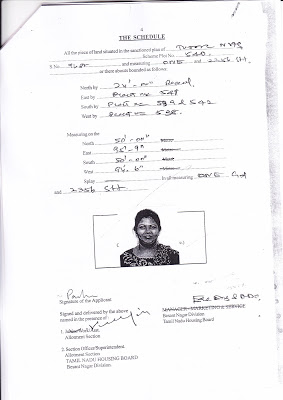 4
THE SCHEDULE
All the piece of land situated in the sanctioned plan of
Scheme Plot No. 540
S.No. and measuring ONE and 2356 Sft.
or there abouts bounded as follows:
North by 24'-00" Road
East by Plot no 541
South by Plot no 539 & 542
West by Plot no 538
Measuring on the
North 50'-00"
East 96'-9"
South 50'-00"
West 94'-6"
Splay In all measuring ONE Gd
and 2356 Sft
Signature of the Applicant
Signed and delivered by the above
named in the presence of :
1.
Allotment Section
2. Section Officer/Superintendent.
Allotment Section
TAMIL NADU HOUSING BOARD
Besant Nagar Division
MANAGER - MARKETING & SERVICE
Besant Nagar Division
Tamil Nadu Housing Board